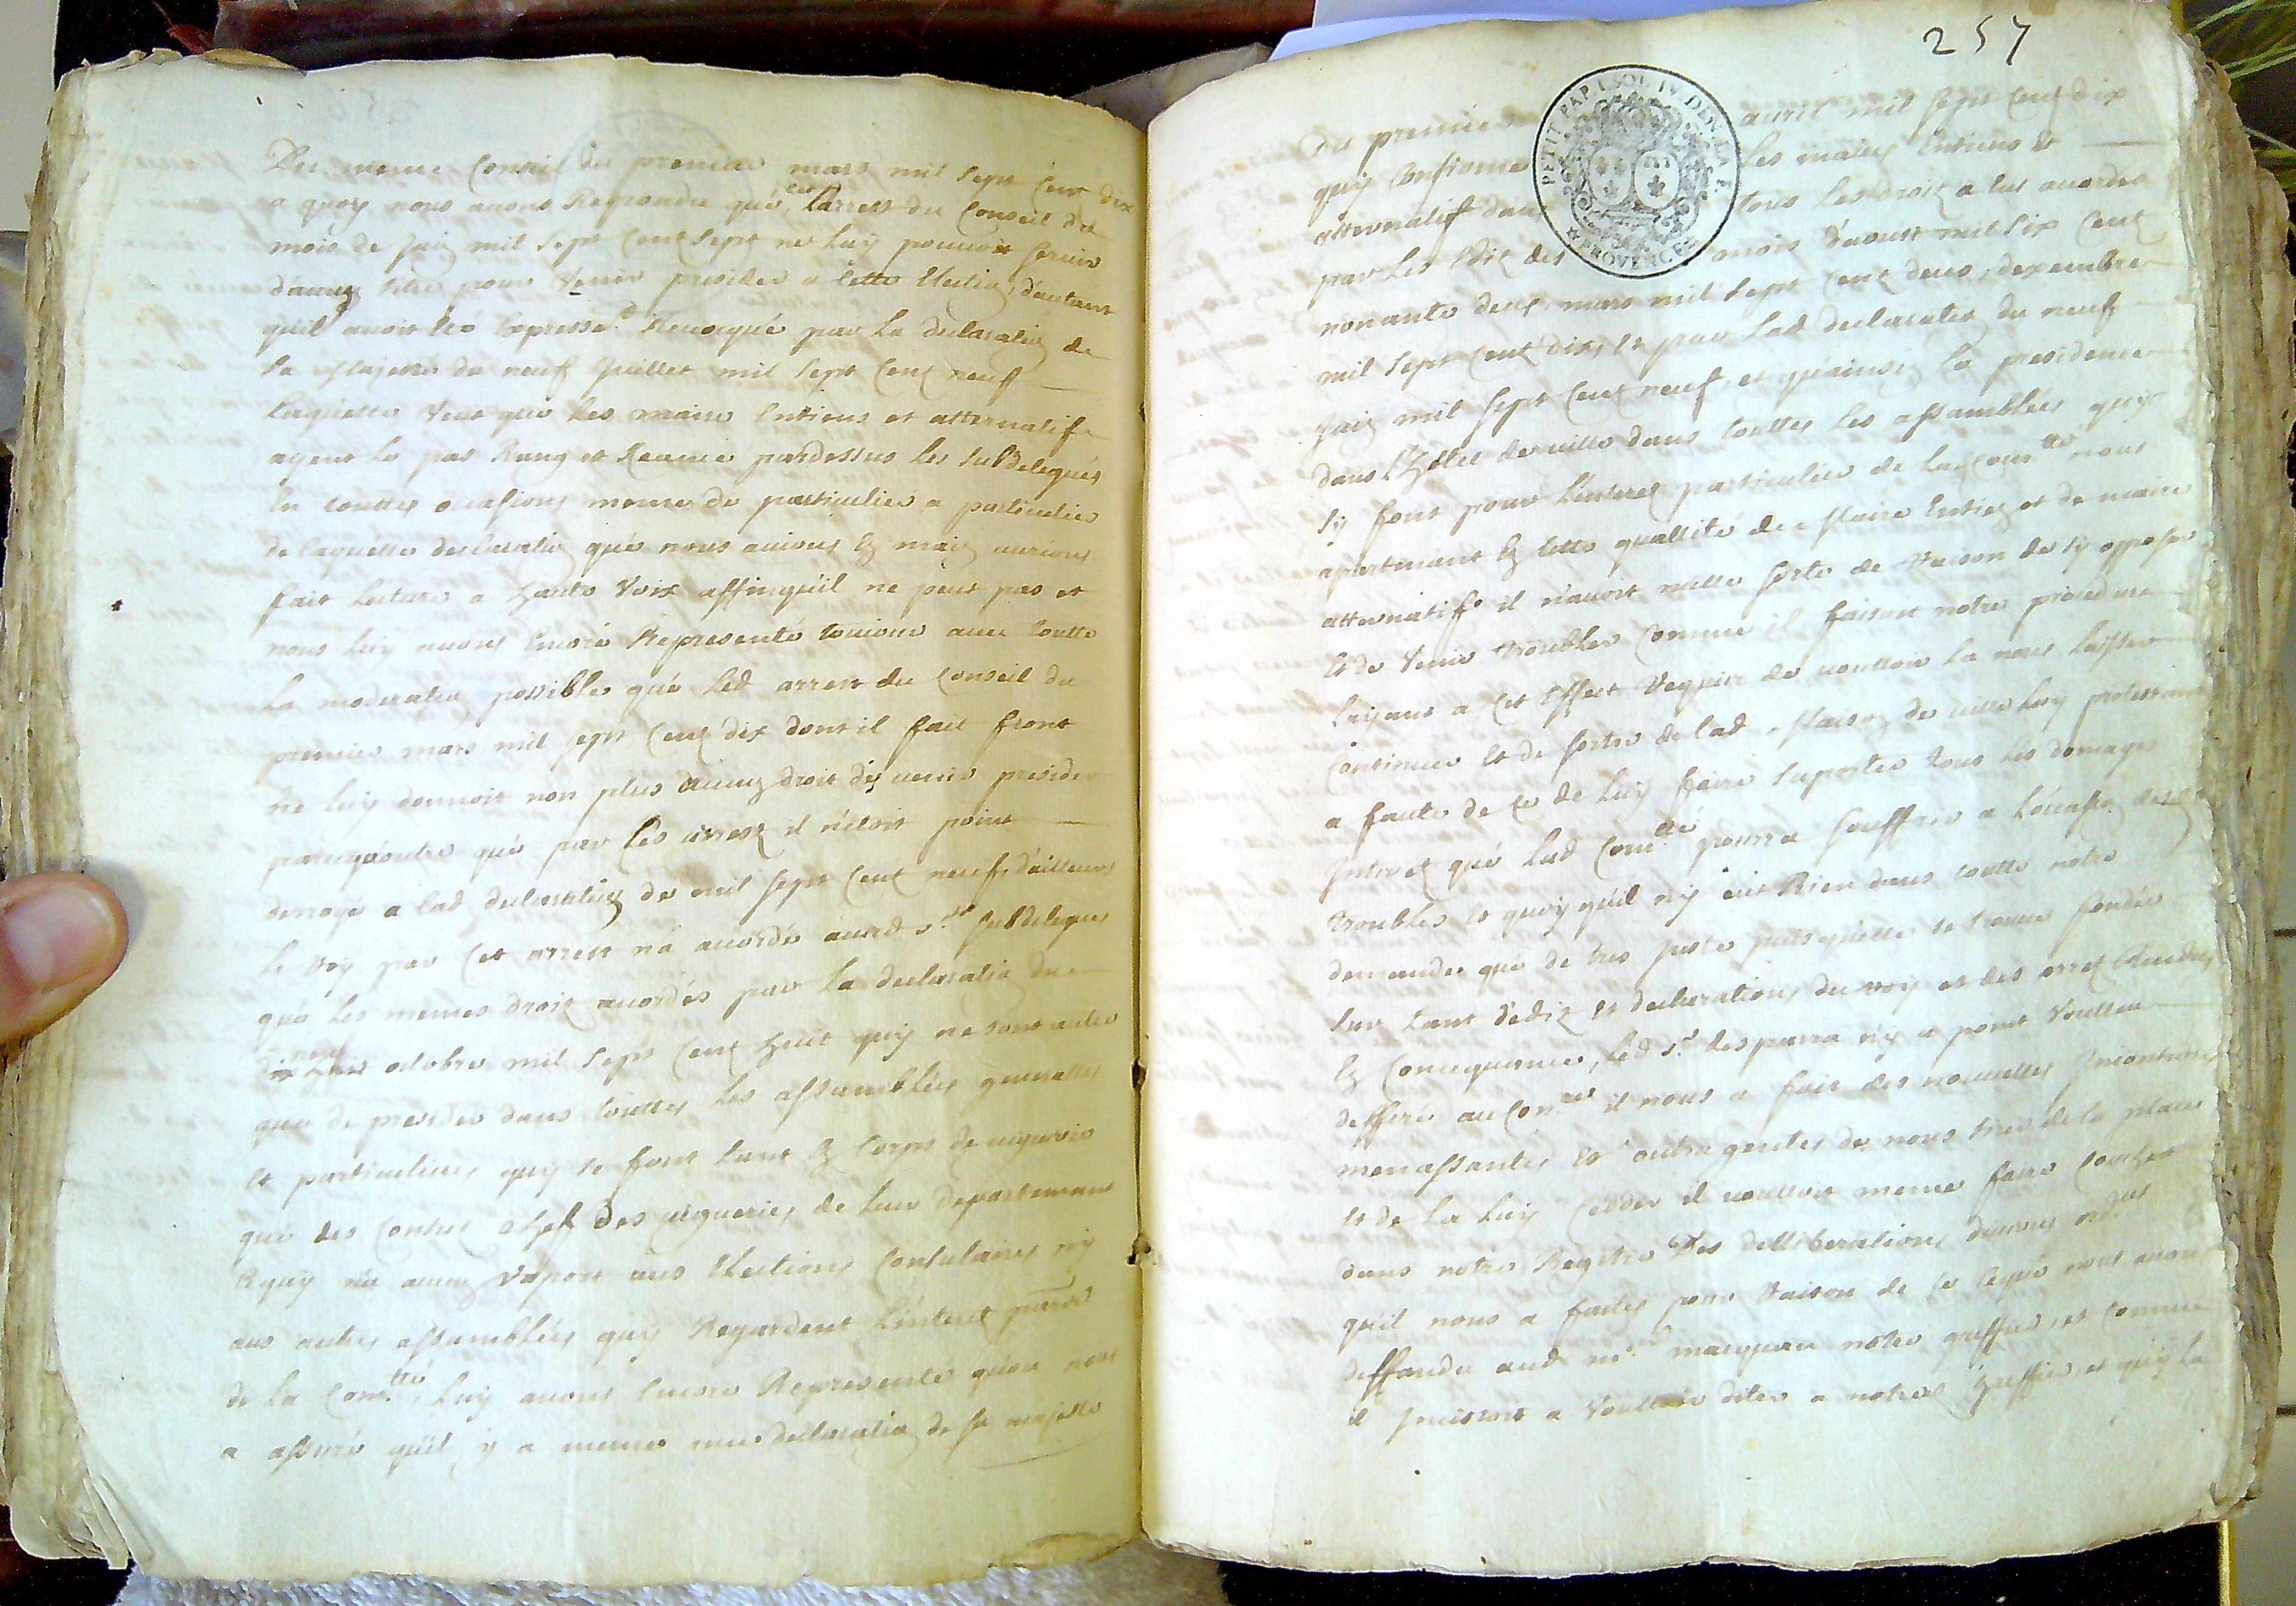 Du meme Conseil du premier mars mil sept Cent dix
a quoy nous avons Repondu que cet larrest du Conseil du
mois de juin mil sept Cent sept ne luy pouvoit servir
d'aucun titre pour venir presider a cette Election, d'autant
quil avoit été Expressem.t Revocqué par la declaration de
sa Majesté du neuf Juillet mil sept Cent neuf
laquelle veut que les maire Entiens et alternatif
ayent le pas Rang et seance pardessus les subdelegués
En touttes occasions meme de particulier a particulier
de laquelle declaration que nous avions En main aurions
fait lecture a haute voix affinquil ne peut pas et
nous luy avons Encore Representé toujour avec toutte
la moderation possible que led arrest du Conseil du
premier mars mil sept Cent dix dont il fait front
ne luy donnoit non plus aucun droit de venir presider
parcequoutre que par les arrest il n'etoit point
derrogé a lad declaration de mil sept Cent neuf, d'ailleurs
le Roy par Cet arrest n'a accordé auxd s.rs subdelegues
que les memes droit accordés par la declaration du
octobre mil sept Cent huit quy ne sont autre
que de presider dans touttes les assamblées generalles
et particulieres quy se font tant En Corps de viguerie
que des Consuls Chefs des vigueries de leur departemant
Cequy n'a aucun Raport aux Elections Consulaires ny
aux autres assamblées quy Regardent l'interet
de la Com.tté, luy avons Encore Representé qu'on nous
a assuré quil y a meme une declaration de sa majesté
257
PETIT PAP. 1. SOL IV. DEN. LA F.
PROVENCE
Du premier avril mil sept Cent dix
quy Confirme les maires Entiens et
alternatif dans tous les droit a lui accordés
par les Edit des mois d'aoust mil six Cent
nonante deux, mars mil sept Cent deux, dexembre
mil sept Cent dix, et par lad declaration du neuf
juin mil sept Cent neuf, et qu'ainsy la presidence
dans l'hotel de ville dans touttes les assamblées quy
sy font pour l'interet particulier de la Com.tté nous
apartenant En cette quallité de Maire Entien et de maire
alternatif il n'avoit nulle sorte de Raison de sy opposer
et de venir troubler Comme il faisoit notre procedure
l'ayant a Cet Effect Requis de voulloir la nous laisser
Continuer et de sortir de lad Maison de ville luy protestant
a faute de Ce de luy faire suporter tous les domages
Interet que lad Com.tté pourra souffrir a l'occasion desd
troubles et quoy quil n'y eut Rien dans toutte notre
demande que de tres juste puis quelle se trouve fondée
sur tant d'Edit et declarations du roy et des arret Rendus
En Consequance, led s.r desparra n'y a point voulleu
defferé au Con.re il nous a fait des nouvelles
menassantes et outrageantes de nous tirer de la place
et de la luy Cedder il voulloit meme faire Coucher
dans notre Registre des delliberations diverses ord.ces
quil nous a faites pour Raison de Ce Ceque nous avons
deffandu aud m.e notre greffier, et Comme
il Incistoit a voulloir dicter a notred greffier, et quy la